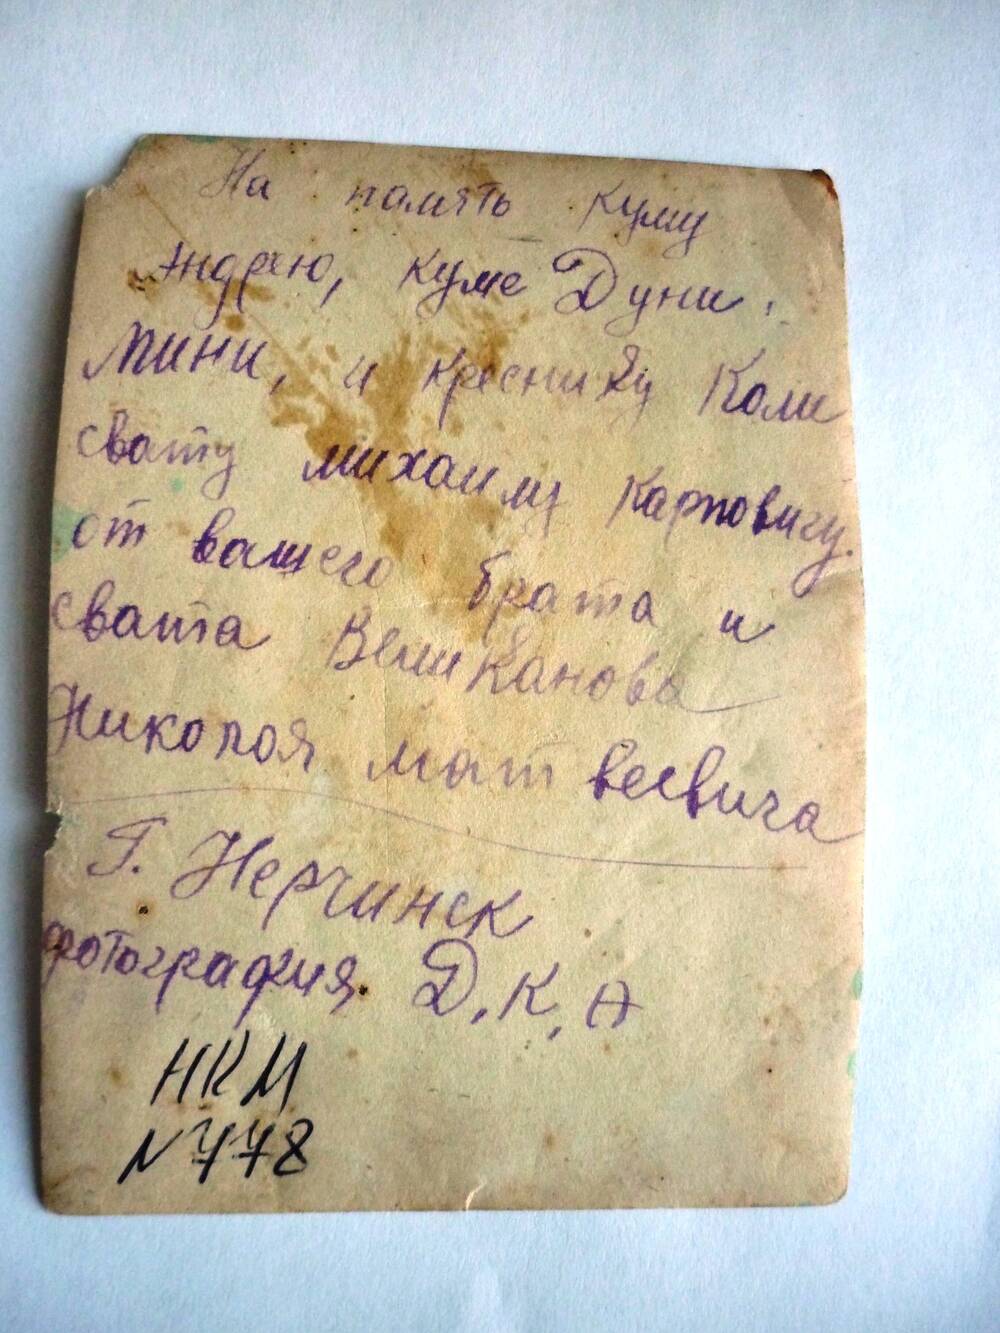 На память куму
Андрею, куме Дуни.
Мини, и креснику Коли
свату михаилу Карповичу.
от вашего брата и
свата Великанова
Николоя матвеевича
Г. Нерчинск
фотография Д.К.А
НКМ
N778